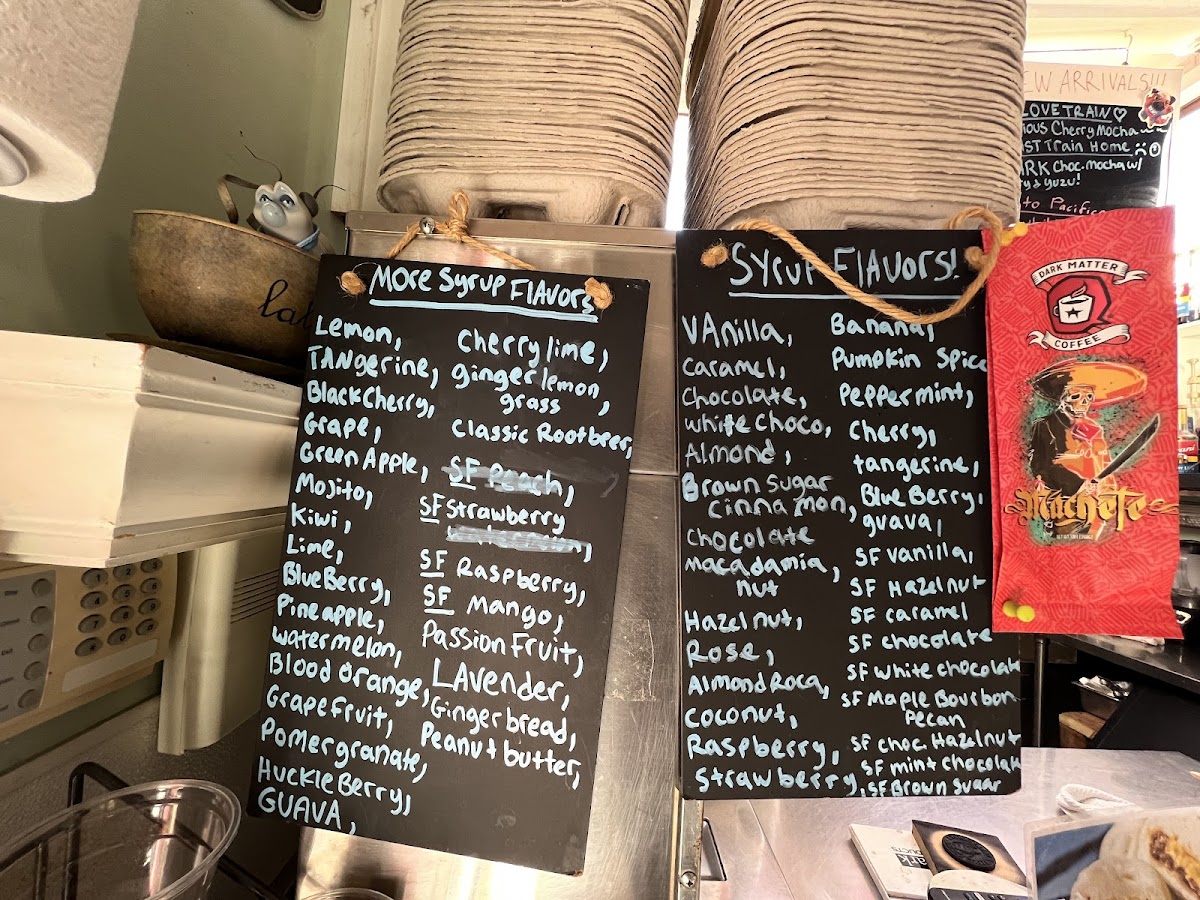 More Syrup Flavors
Lemon,
TANgerine,
Black Cherry,
Grape,
Green Apple,
Mojito,
Kiwi,
Lime,
BlueBerry,
Pineapple,
watermelon,
Blood orange,
Grapefruit,
Pomergranate,
HuckleBerry,
GUAVA,
Cherry lime,
ginger lemon
grass,
Classic Rootbeer,
SF Peach,
SF Strawberry
SF Raspberry,
SF Mango,
Passion Fruit,
LAvender,
Gingerbread,
Peanut butter,
Syrup Flavors!
VAnilla,
Caramel,
Chocolate,
white choco,
Almond,
Brown sugar
cinnamon,
Chocolate
macadamia,
nut
Hazelnut,
Rose,
Almond Roca,
Coconut,
Raspberry,
Strawberry,
Banana,
Pumpkin Spice
Peppermint,
Cherry,
tangerine,
BlueBerry,
guava,
SF vanilla,
SF Hazelnut
SF caramel
SF chocolate
SF white chocolat
SF Maple Bourbon
Pecan
SF choc. Hazelnut
SF mint chocolat
SF Brown Sugar
EW ARRIVALS!!!
LOVE TRAIN
ious Cherry Mocha
ST Train Home
ARK choc. mocha w/
y & yuzu!
to Pacific
DARK MATTER
COFFEE
MacheTe
lat